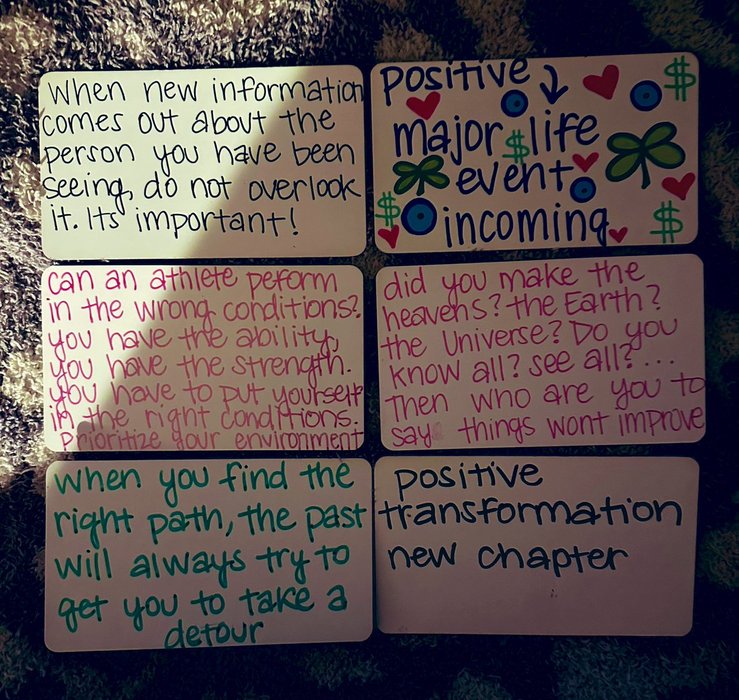 When new information
comes out about the
person you have been
seeing, do not overlook
it. Its important!
positive
major $ life
event
incoming
can an athlete peform
in the wrong conditions?
you have the ability,
you have the strength.
you have to put yourself
in the right conditions.
Prioritize your environment
did you make the
heavens? the Earth?
the Universe? Do you
know all? see all?...
Then who are you to
say things wont improve
when you find the
right path, the past
will always try to
get you to take a
detour
positive
transformation
new chapter